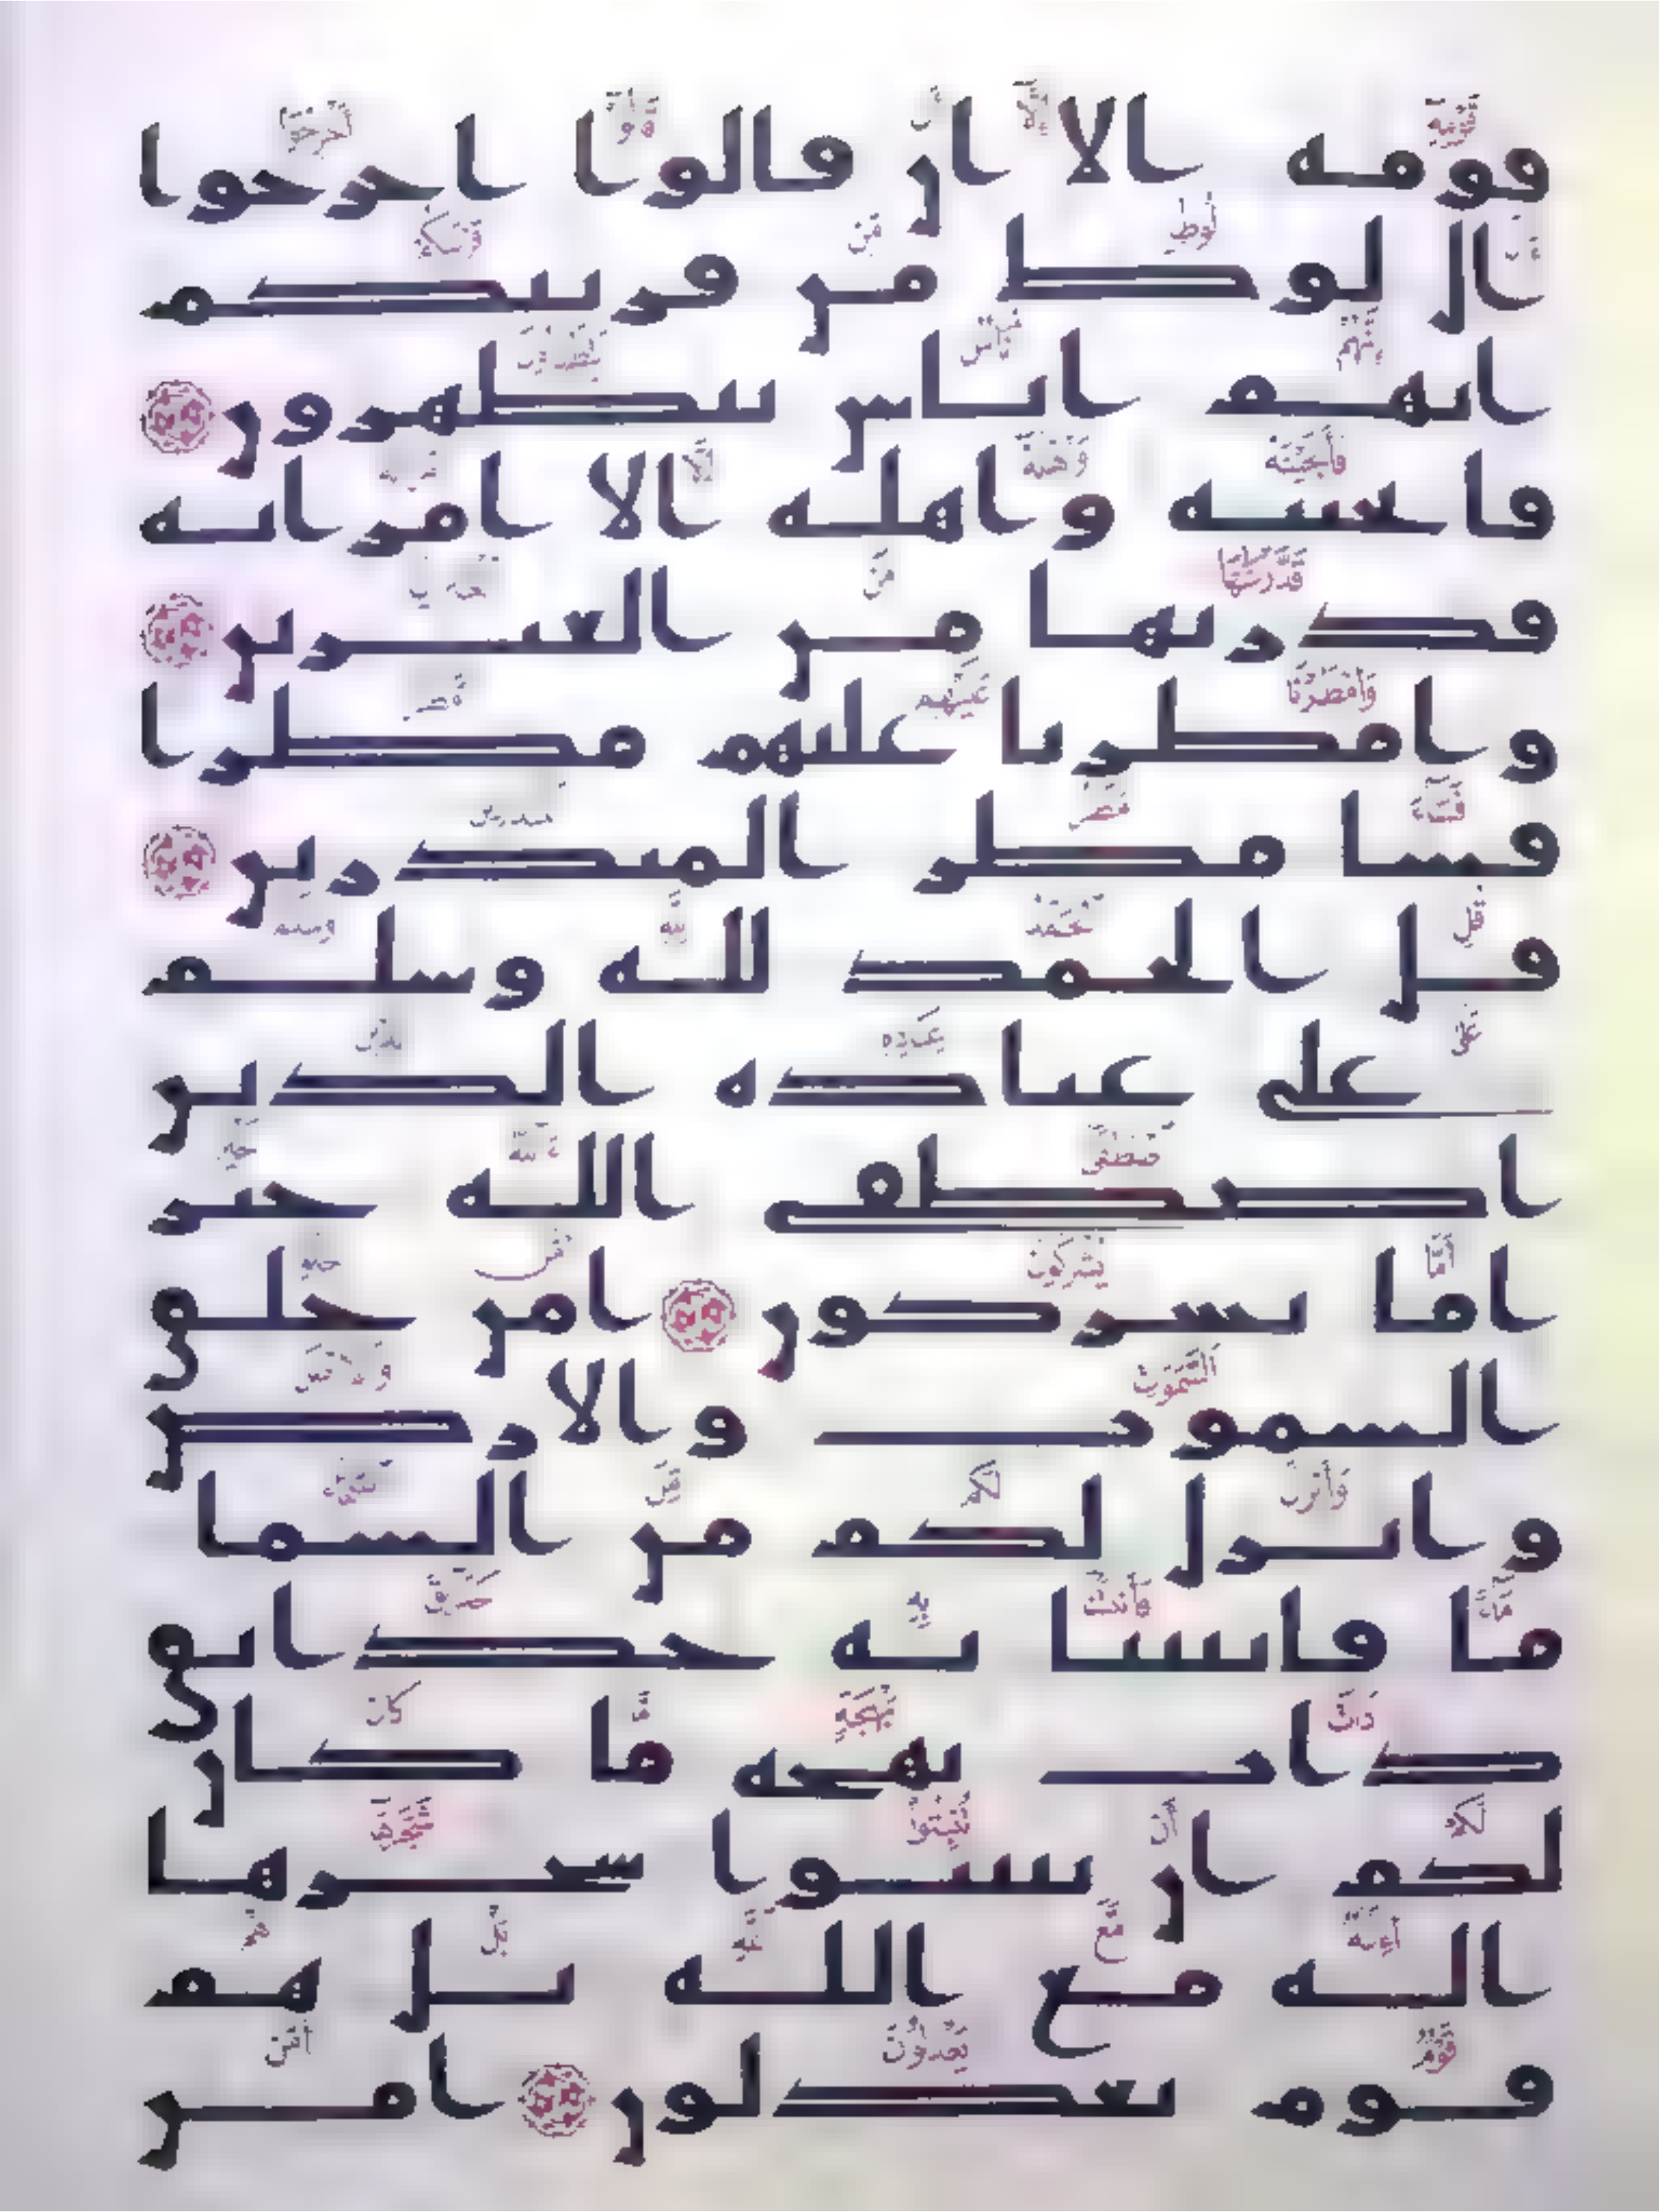 قومه الا ان قالوا اخرجوا
ال لوط من قريتكم
انهم اناس يتطهرون
فانجينه واهله الا امراته
قدرنها من الغبرين
وامطرنا عليهم مطرا
فسا مطر المنذرين
قل الحمد لله وسلم
على عباده الذين
اصطفى الله خير
اما يشركون امن خلق
السموت والارض
وانزل لكم من السما
ما فانبتنا به حدائق
ذات بهجه ما كان
لكم ان تنبتوا شجرها
اله مع الله بل هم
قوم يعدلون امن